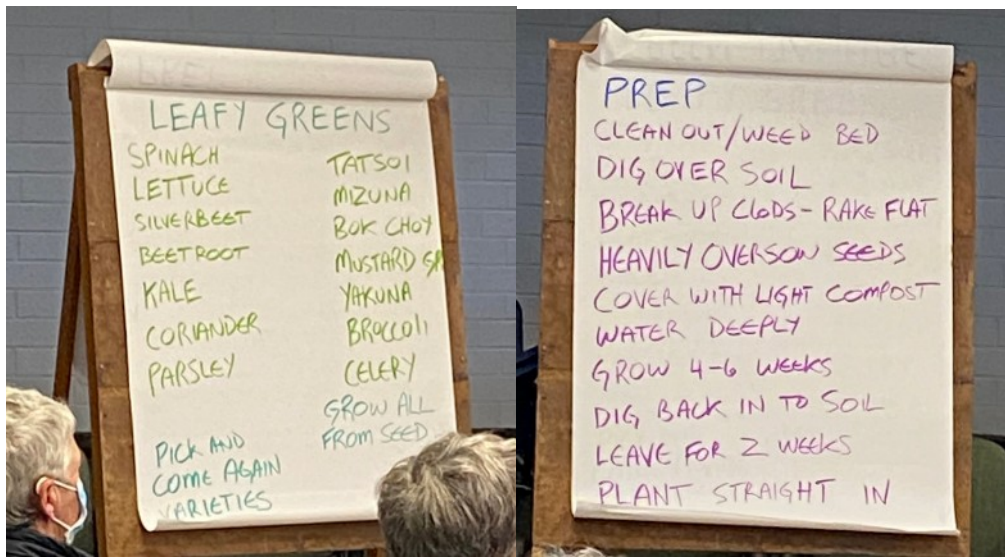 LEAFY GREENS
SPINACH
LETTUCE
SILVERBEET
BEETROOT
KALE
CORIANDER
PARSLEY
PICK AND
COME AGAIN
VARIETIES
TATSOI
MIZUNA
BOK CHOY
MUSTARD
YAKUNA
BROCCOLI
CELERY
GROW ALL
FROM SEED
PREP
CLEAN OUT/WEED BED
DIG OVER SOIL
BREAK UP CLODS - RAKE FLAT
HEAVILY OVERSOW SEEDS
COVER WITH LIGHT COMPOST
WATER DEEPLY
GROW 4-6 WEEKS
DIG BACK IN TO SOIL
LEAVE FOR 2 WEEKS
PLANT STRAIGHT IN